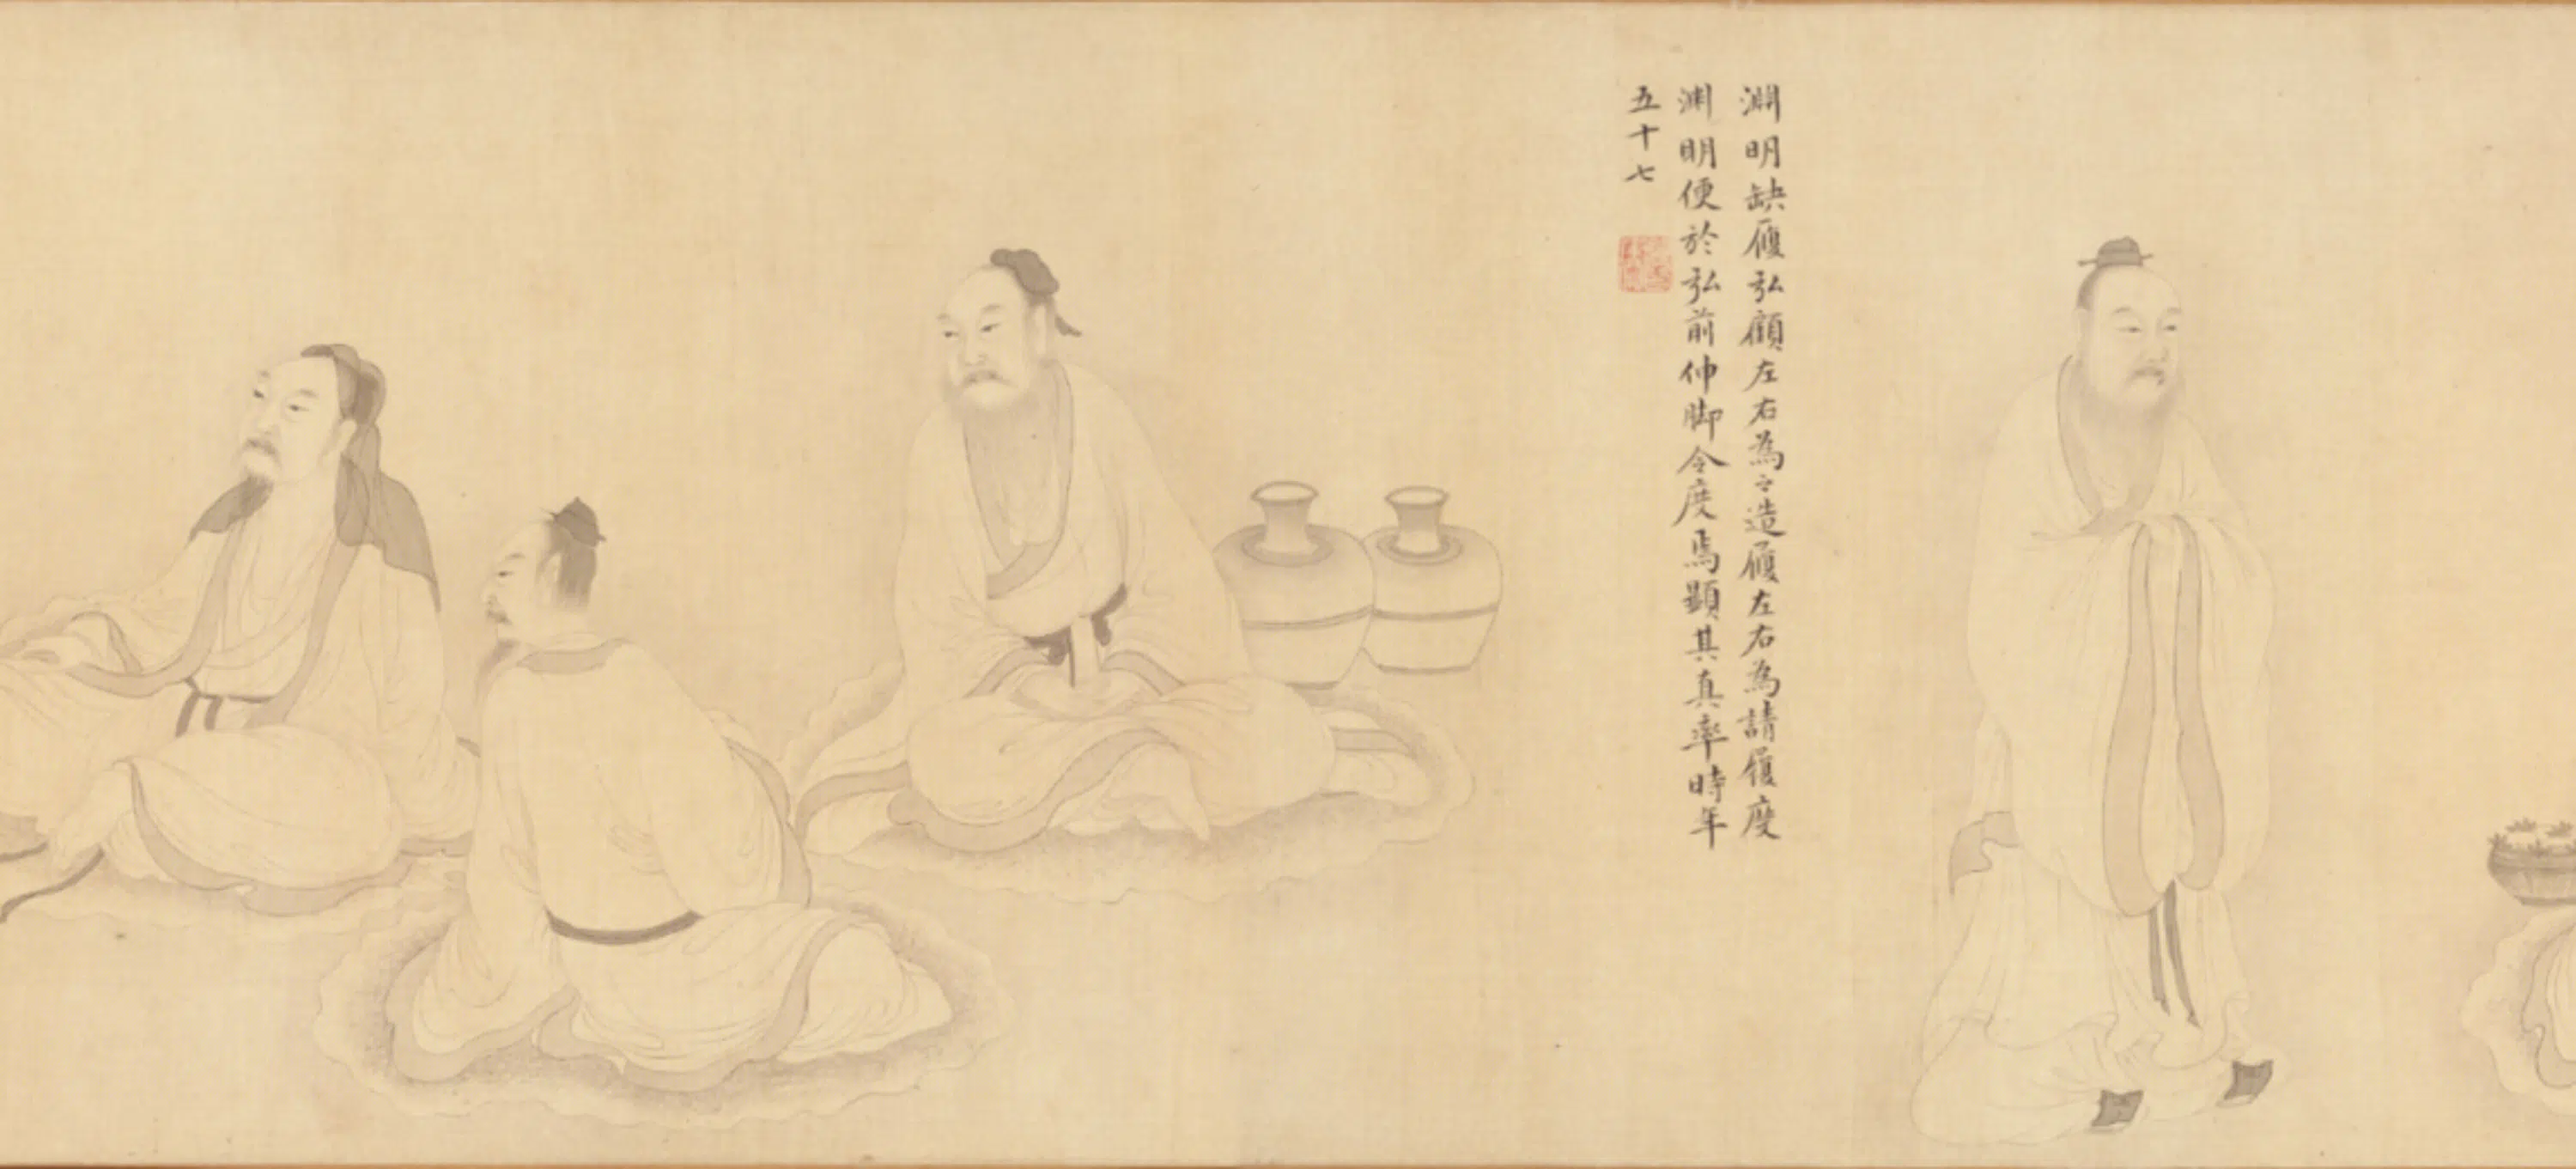 淵明缺履弘顧左右為〻造履左右為請履度
淵明便於弘前伸脚令度焉顯其真率時年
五十七